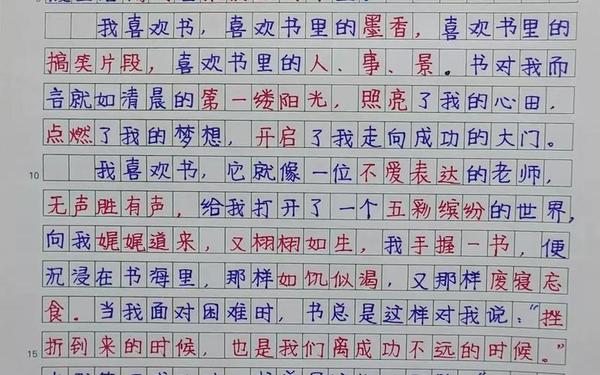 我喜欢书，喜欢书里的墨香，喜欢书里的
搞笑片段，喜欢书里的人、事、景。书对我而
言就如清晨的第一缕阳光，照亮了我的心田，
点燃了我的梦想，开启了我走向成功的大门。
10
我喜欢书，它就像一位不爱表达的老师，
无声胜有声，给我打开了一个五彩缤纷的世界，
向我娓娓道来，又栩栩如生，我手握一书，便
沉浸在书海里，那样如饥似渴，又那样废寝忘
食。当我面对困难时，书总是这样对我说：“挫
15
折到来的时候，也是我们离成功不远的时候。”